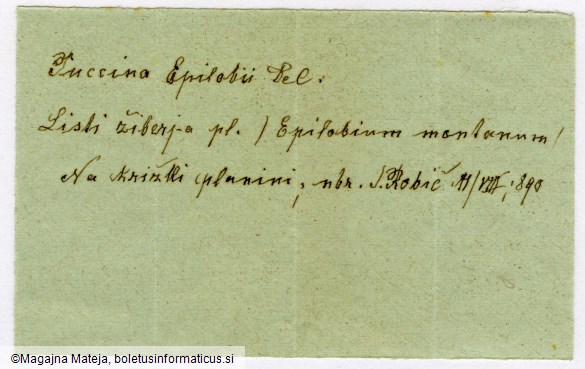 Puccina Epilobii Del.
Listi žiberja pl. / Epilobium montanum /
Na Križki planini, nbr. J. Robič 11/VIII, 890
©Magajna Mateja, boletusinformaticus.si